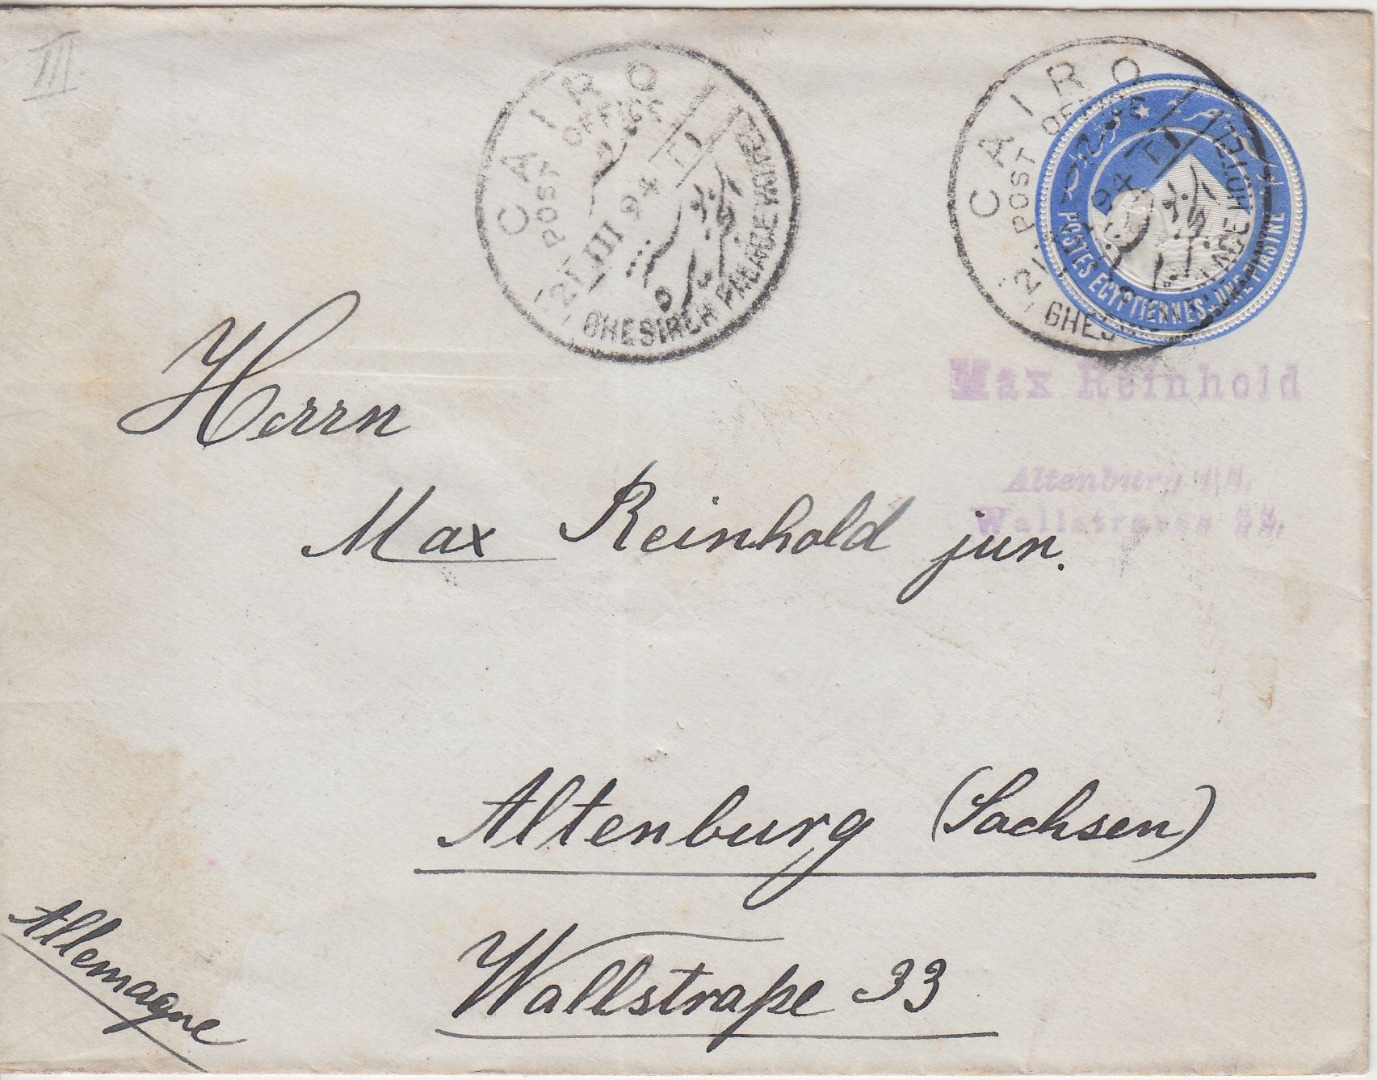 III
CAIRO
POST OFFICE
21 III 94 TI
GHESIREH PALACE HOTEL
CAIRO
POST OFFICE
21 94 TI
GHESIREH PALACE HOTEL
POSTES EGYPTIENNES·UNE PIASTRE
Max Reinhold
Altenburg
Wallstrasse 33.
Herrn
Max Reinhold jun.
Altenburg (Sachsen)
Wallstraße 33
Allemagne